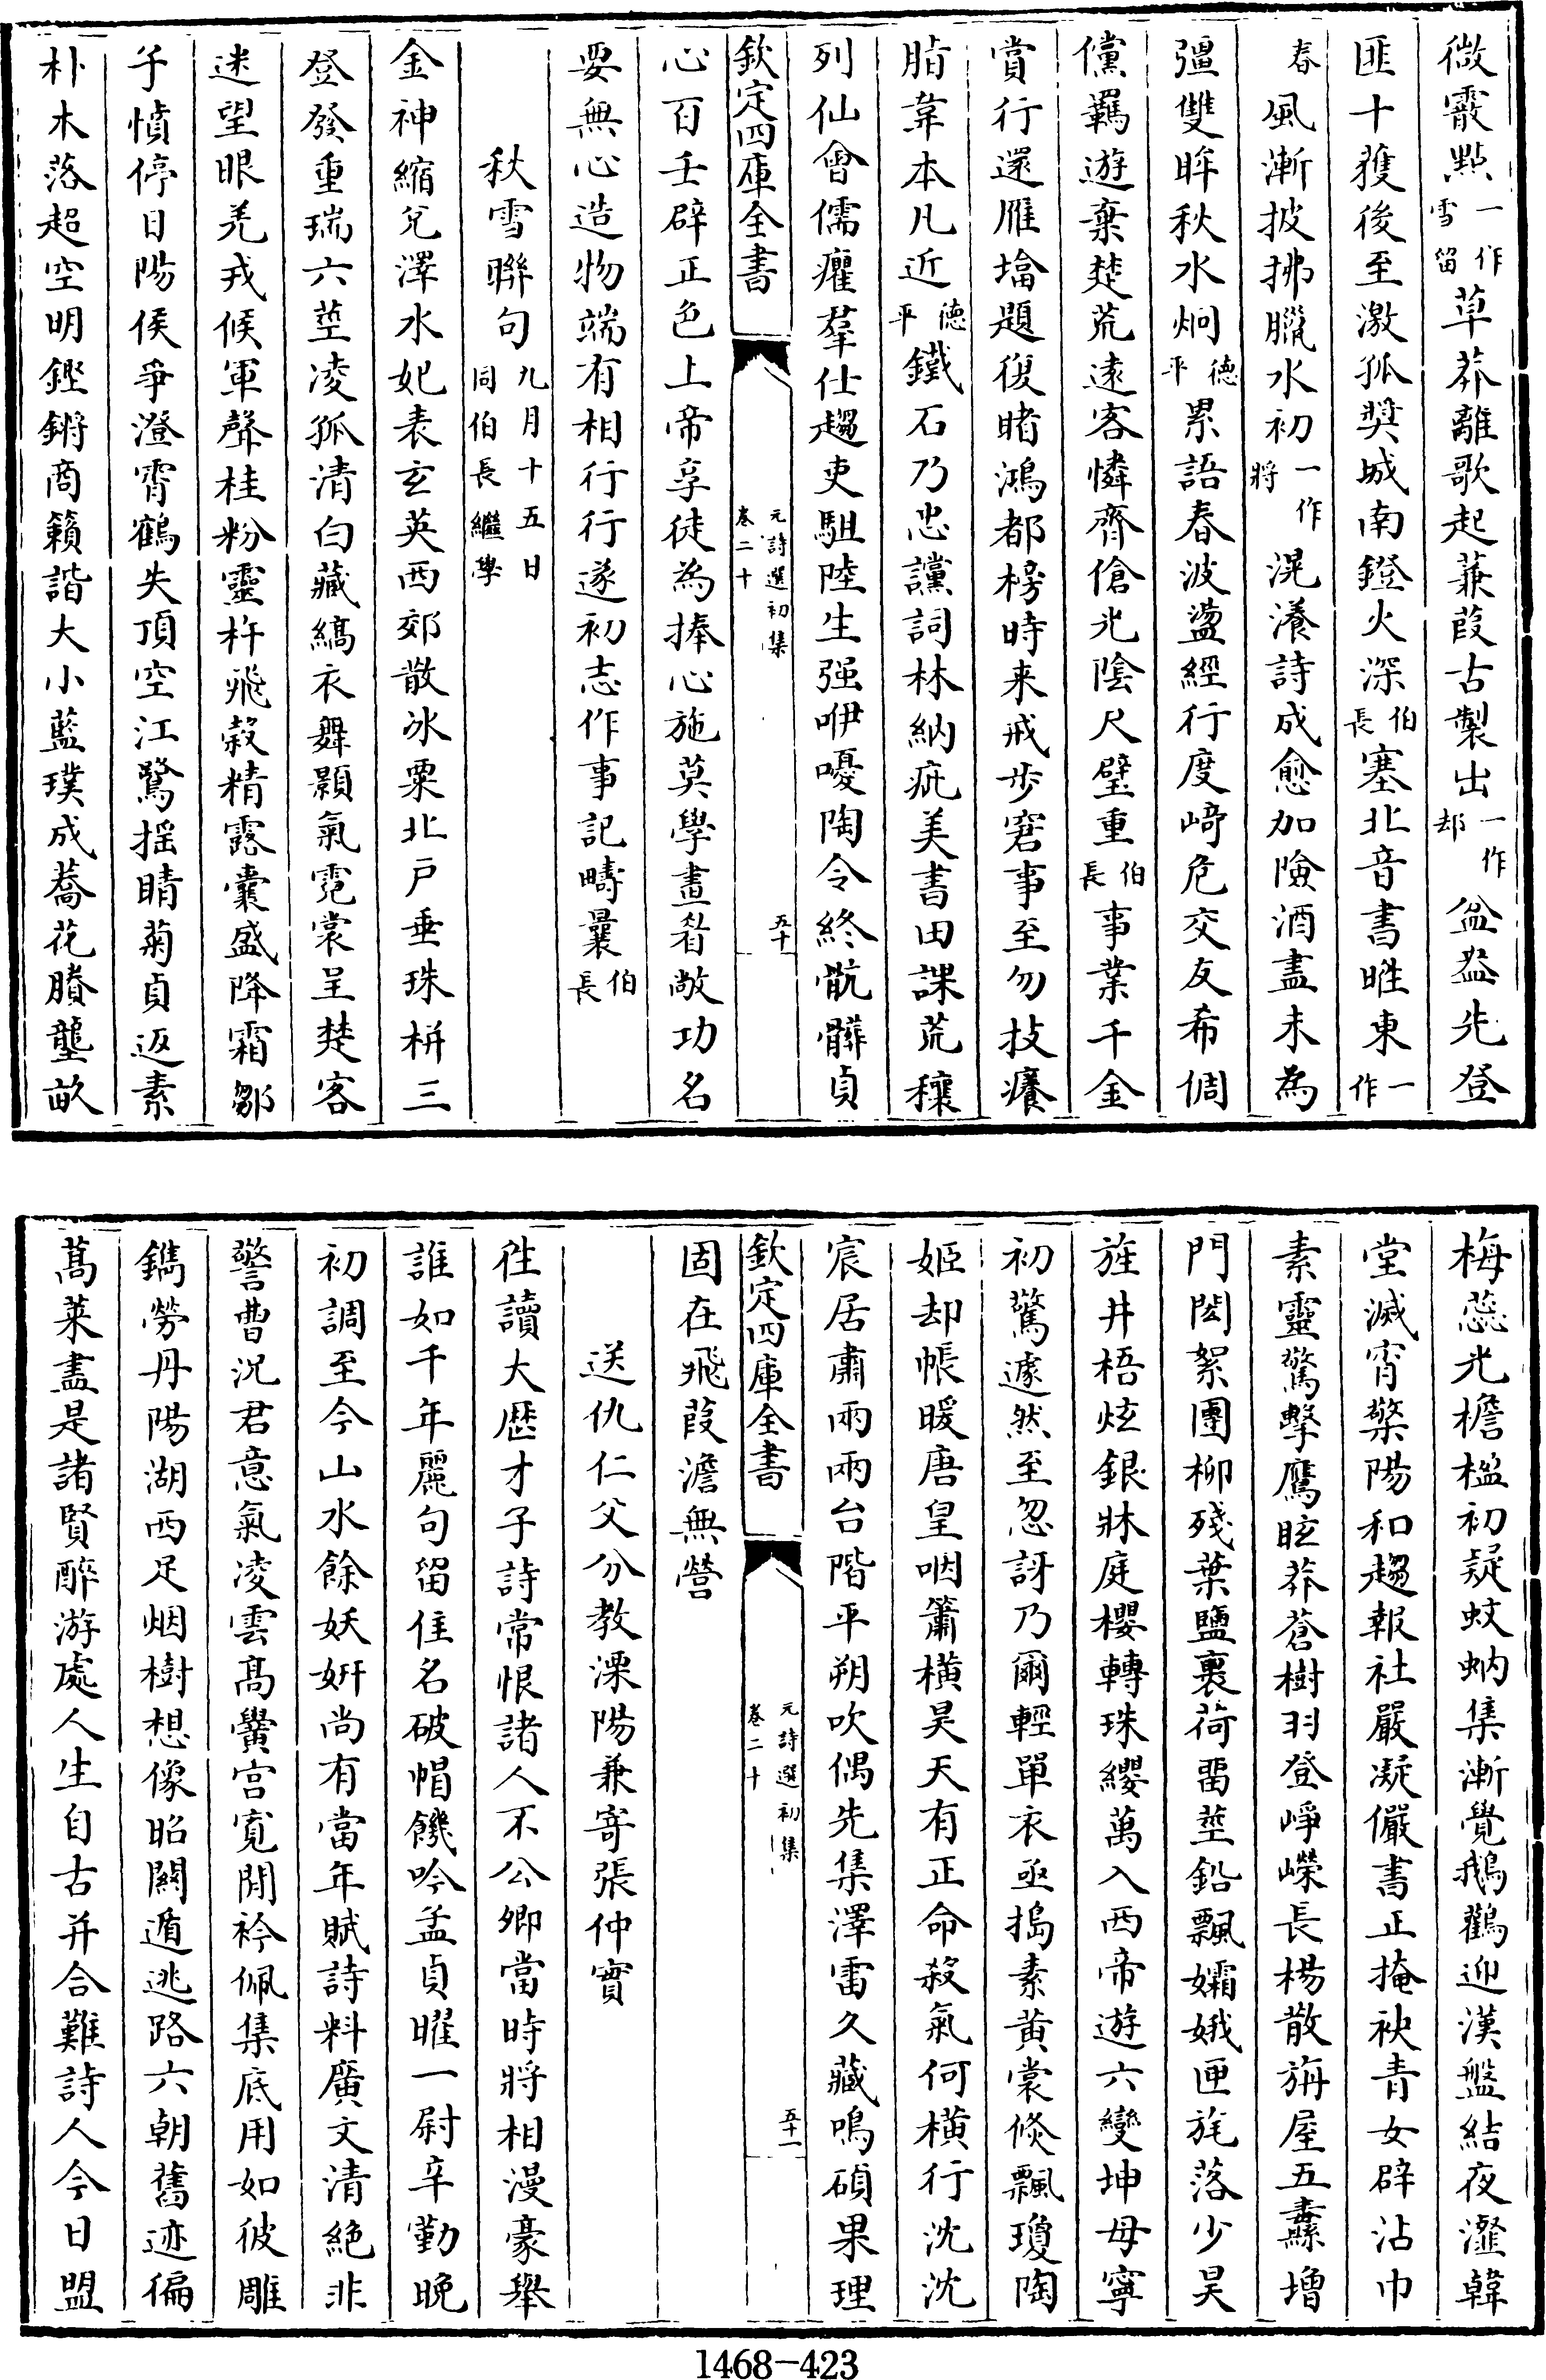 微霰點一作雪留草莽離歌起蒹葭古製出一作却盆盎先登
匪十獲後至激孤奬城南鐙火深伯長塞北音書暌東一作
春風漸披拂臘水初一作將滉瀁詩成愈加險酒盡未為
彊雙眸秋水炯德平累語春波盪經行度﨑危交友希倜
儻羈遊棄楚荒逺客憐齊傖光陰尺璧重伯長事業千金
賞行還雁塔題復睹鴻都榜時来戒步窘事至勿技癢
脂韋本凡近德平鐵石乃忠讜詞林納疵美書田課荒穰
列仙㑹儒癯羣仕趨吏駔陸生强咿嚘陶令終骯髒貞
欽定四庫全書
元詩選初集
卷二十
五十
心百壬辟正色上帝享徒為捧心施莫學畫眷敞功名
要無心造物端有相行行遂初志作事記疇曩伯長
秋雪聯句九月十五日同伯長繼學
金神縮兌澤水妃表玄英西郊散冰粟北戸垂珠栟三
登發重瑞六莖凌孤清白藏縞衣舞顥氣霓裳呈楚客
迷望眼羌戎候軍聲桂粉靈杵飛榖精露囊盛降霜鄒
子憤停日陽侯爭澄霄鶴失頂空江鷺揺睛菊貞返素
朴木落超空明鏗鏘商籟諧大小藍璞成蕎花賸壟畝
梅蕊光檐楹初疑蚊蚋集漸覺鵝鸛迎漢盤結夜瀣韓
堂滅宵檠陽和趨報社嚴凝儼書正掩袂青女辟沾巾
素靈驚擊鷹眩莽蒼樹羽登崢嶸長楊散旃屋五纛增
門閎絮團柳殘葉鹽裹荷罶莖鉛飄孀娥匣旄落少昊
旌井梧炫銀牀庭櫻轉珠纓萬入西帝遊六變坤母寧
初驚遽然至忽訝乃爾輕單衣亟搗素黃裳倐飄瓊陶
姬却帳暖唐皇咽簫横昊天有正命殺氣何横行沈沈
宸居肅兩兩台階平朔吹偶先集澤雷久藏鳴碩果理
欽定四庫全書
元詩選初集
卷二十
五十一
固在飛葭澹無營
送仇仁父分教溧陽兼寄張仲實
徃讀大歷才子詩常恨諸人不公卿當時將相漫豪舉
誰如千年麗句留住名破帽饑吟孟貞曜一尉辛勤晚
初調至今山水餘妖妍尚有當年賦詩料廣文清絶非
警曹況君意氣凌雲髙黌宫寛閒衿佩集底用如彼雕
鐫勞丹陽湖西足烟樹想像昭闗遁逃路六朝舊迹徧
蒿萊盡是諸賢醉游處人生自古并合難詩人今日盟
1468-423